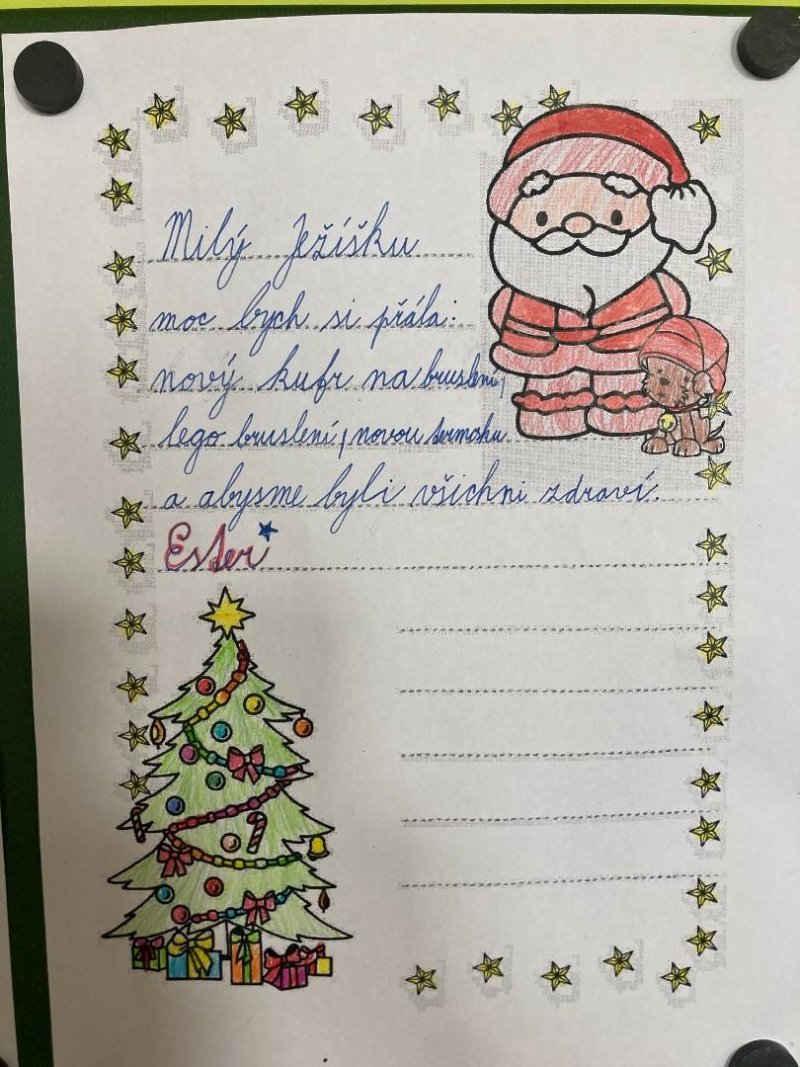 Milý Ježíšku
moc bych si přála:
nový kufr na bruslení,
lego bruslení, novou termosku
a abysme byli všichni zdraví.
Ester